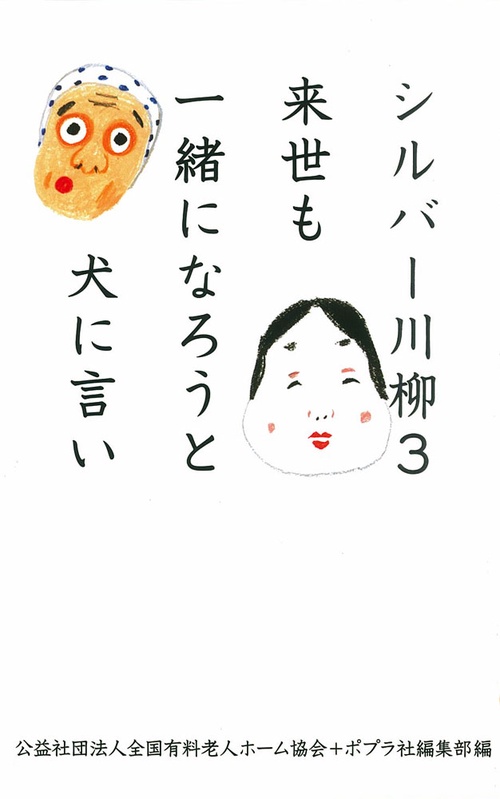 シルバー川柳3
来世も
一緒になろうと
犬に言い
公益社団法人全国有料老人ホーム協会+ポプラ社編集部編